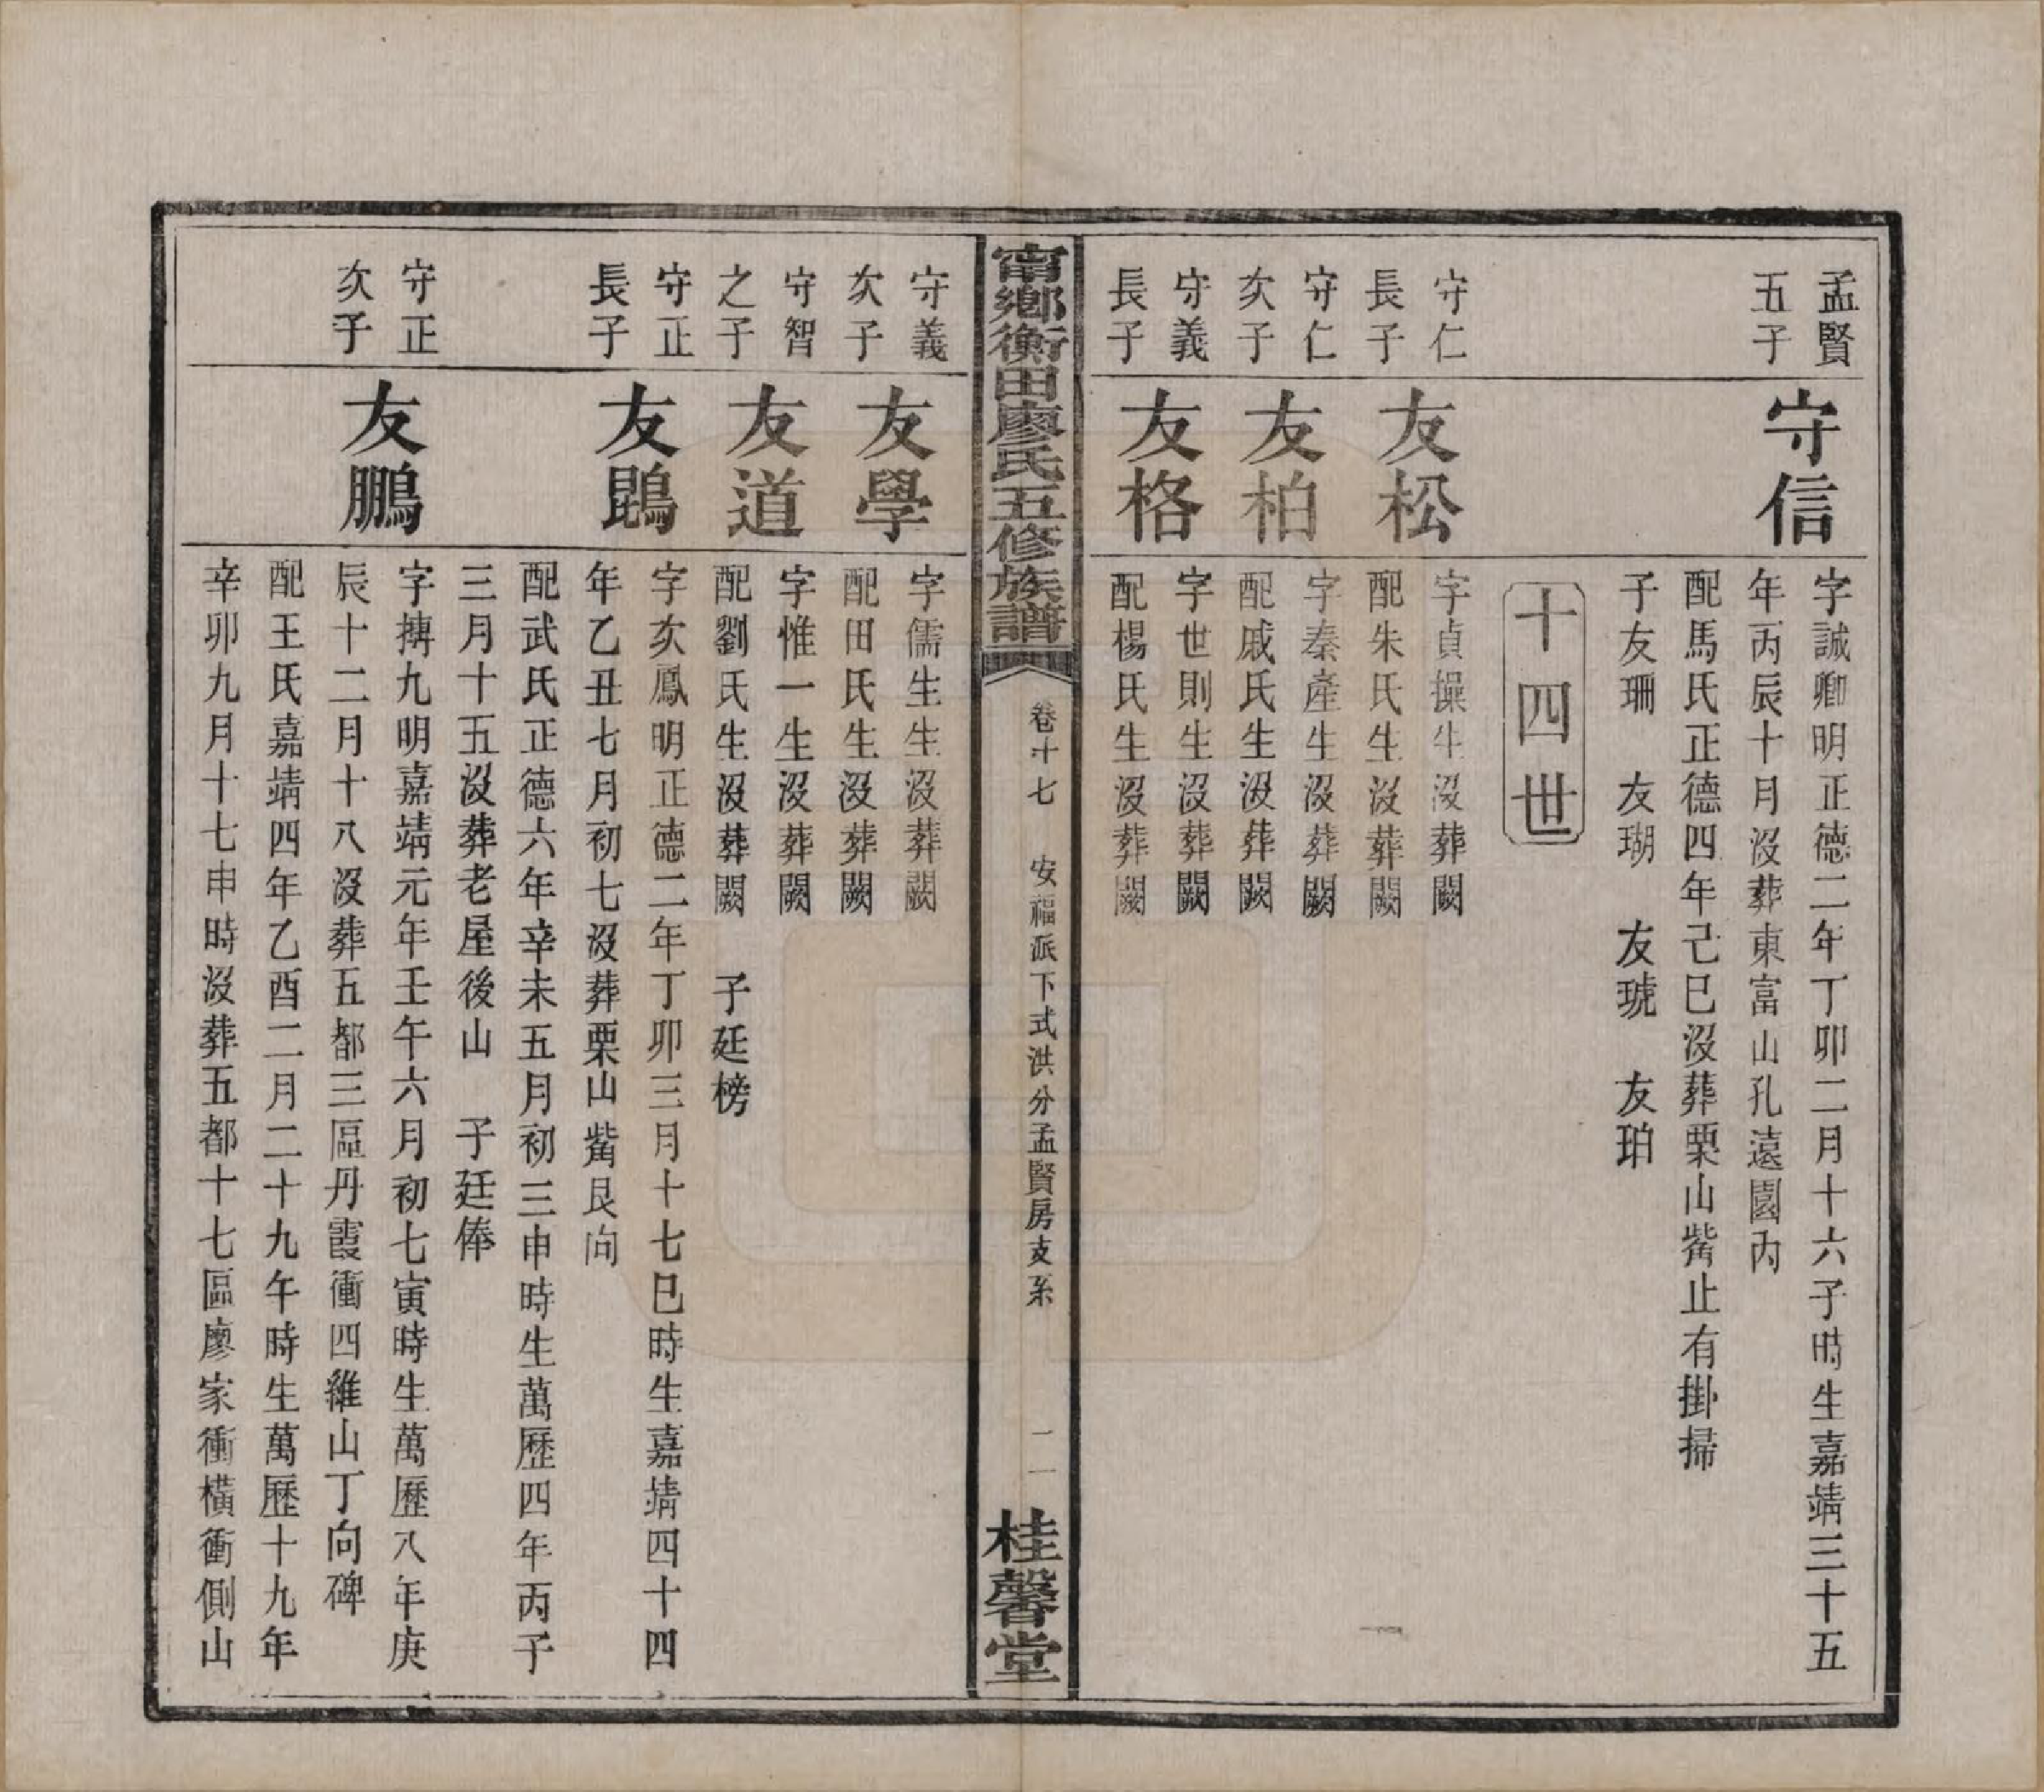 孟賢
五子
守信
字誠卿明正德二年丁卯二月十六子時生嘉靖三十五
年丙辰十月沒葬東富山孔遠園丙
配馬氏正德四年己巳沒葬栗山觜止有掛掃
子友珊　友瑚　友琥　友珀
十四世
守仁
長子
友松
字貞操生沒葬闕
配朱氏生沒葬闕
守仁
次子
友柏
字秦產生沒葬闕
配戚氏生沒葬闕
守義
長子
友格
字世則生沒葬闕
配楊氏生沒葬闕
甯鄉衡田廖氏五修族譜
卷十七　安福派下式洪分孟賢房支系
二
桂馨堂
守義
次子
友學
字儒生生沒葬闕
配田氏生沒葬闕
守智
之子
友道
字惟一生沒葬闕
配劉氏生沒葬闕　子廷榜
守正
長子
友鵾
字次鳳明正德二年丁卯三月十七巳時生嘉靖四十四
年乙丑七月初七沒葬栗山觜艮向
配武氏正德六年辛未五月初三申時生萬歷四年丙子
三月十五沒葬老屋後山　子廷俸
守正
次子
友鵬
字摶九明嘉靖元年壬午六月初七寅時生萬歷八年庚
辰十二月十八沒葬五都三區丹霞衝四維山丁向碑
配王氏嘉靖四年乙酉二月二十九午時生萬歷十九年
辛卯九月十七申時沒葬五都十七區廖家衝橫衝側山